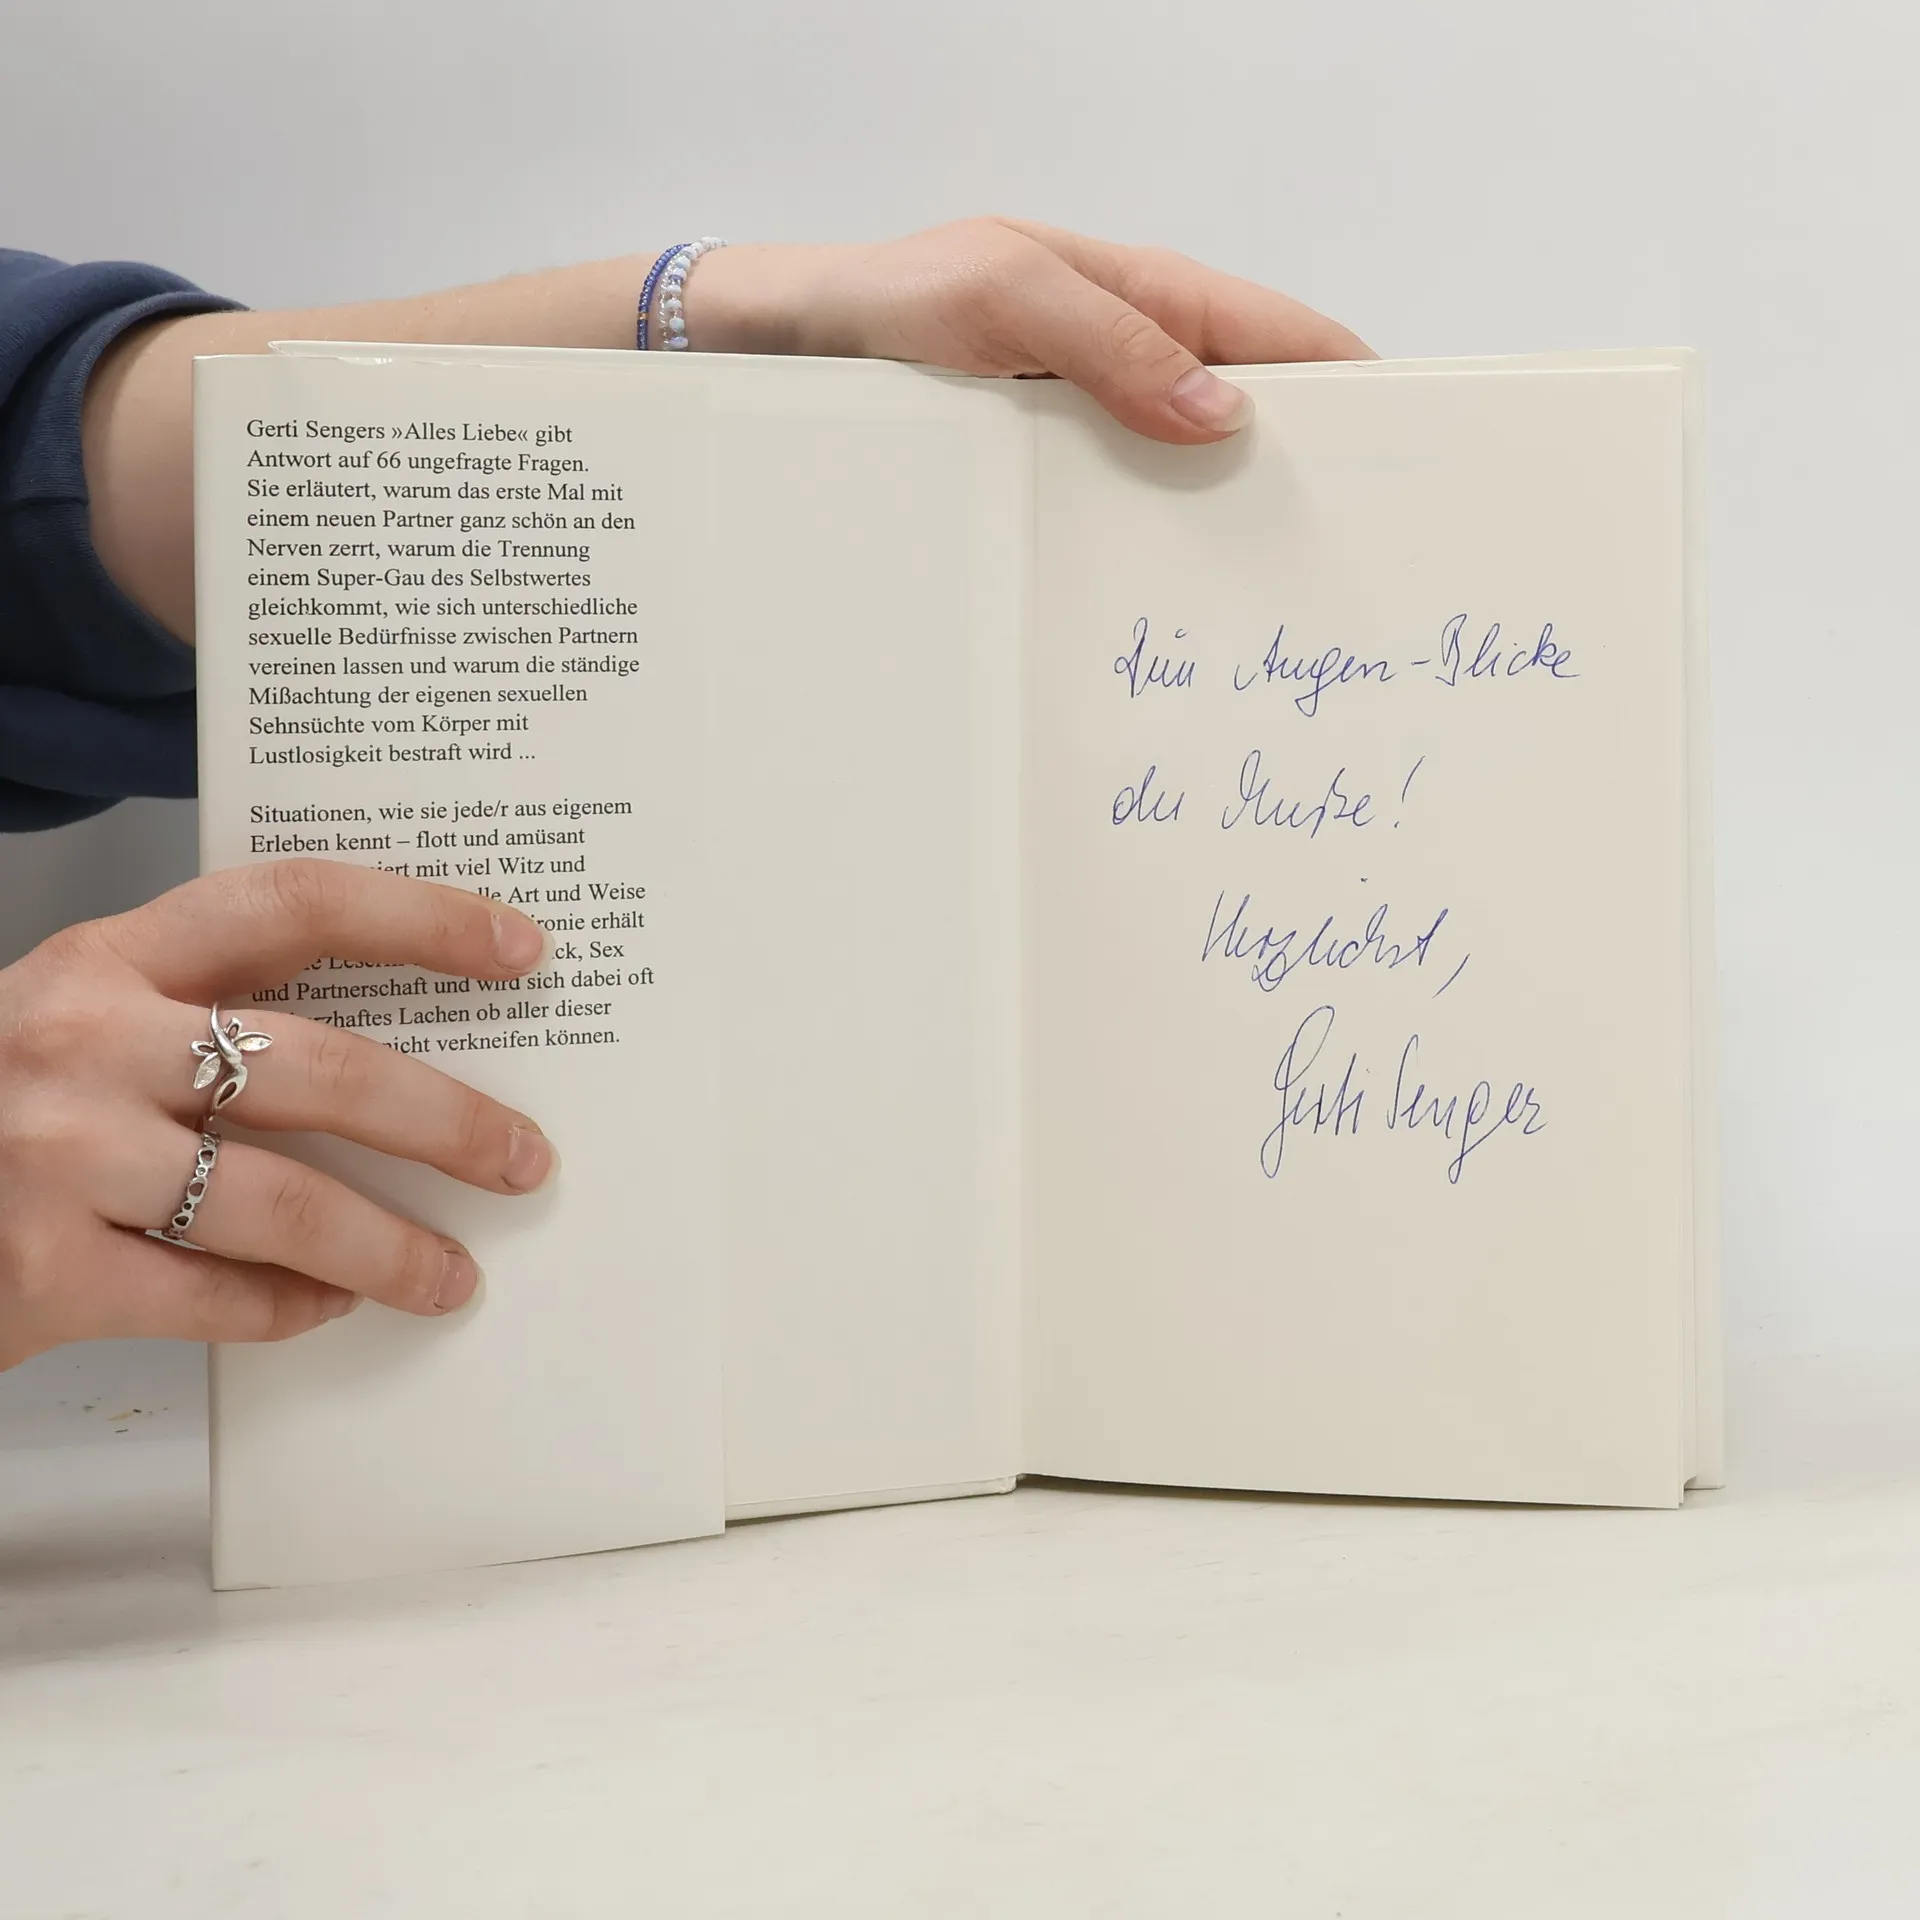 Gerti Sengers »Alles Liebe« gibt
Antwort auf 66 ungefragte Fragen.
Sie erläutert, warum das erste Mal mit
einem neuen Partner ganz schön an den
Nerven zerrt, warum die Trennung
einem Super-Gau des Selbstwertes
gleichkommt, wie sich unterschiedliche
sexuelle Bedürfnisse zwischen Partnern
vereinen lassen und warum die ständige
Mißachtung der eigenen sexuellen
Sehnsüchte vom Körper mit
Lustlosigkeit bestraft wird ...
Situationen, wie sie jede/r aus eigenem
Erleben kennt – flott und amüsant
mit viel Witz und
Art und Weise
erhält
Sex
und Partnerschaft und wird sich dabei oft
Lachen ob aller dieser
nicht verkneifen können.
Augen-Blicke
der Muße!
Herzlichst,
Gerti Senger